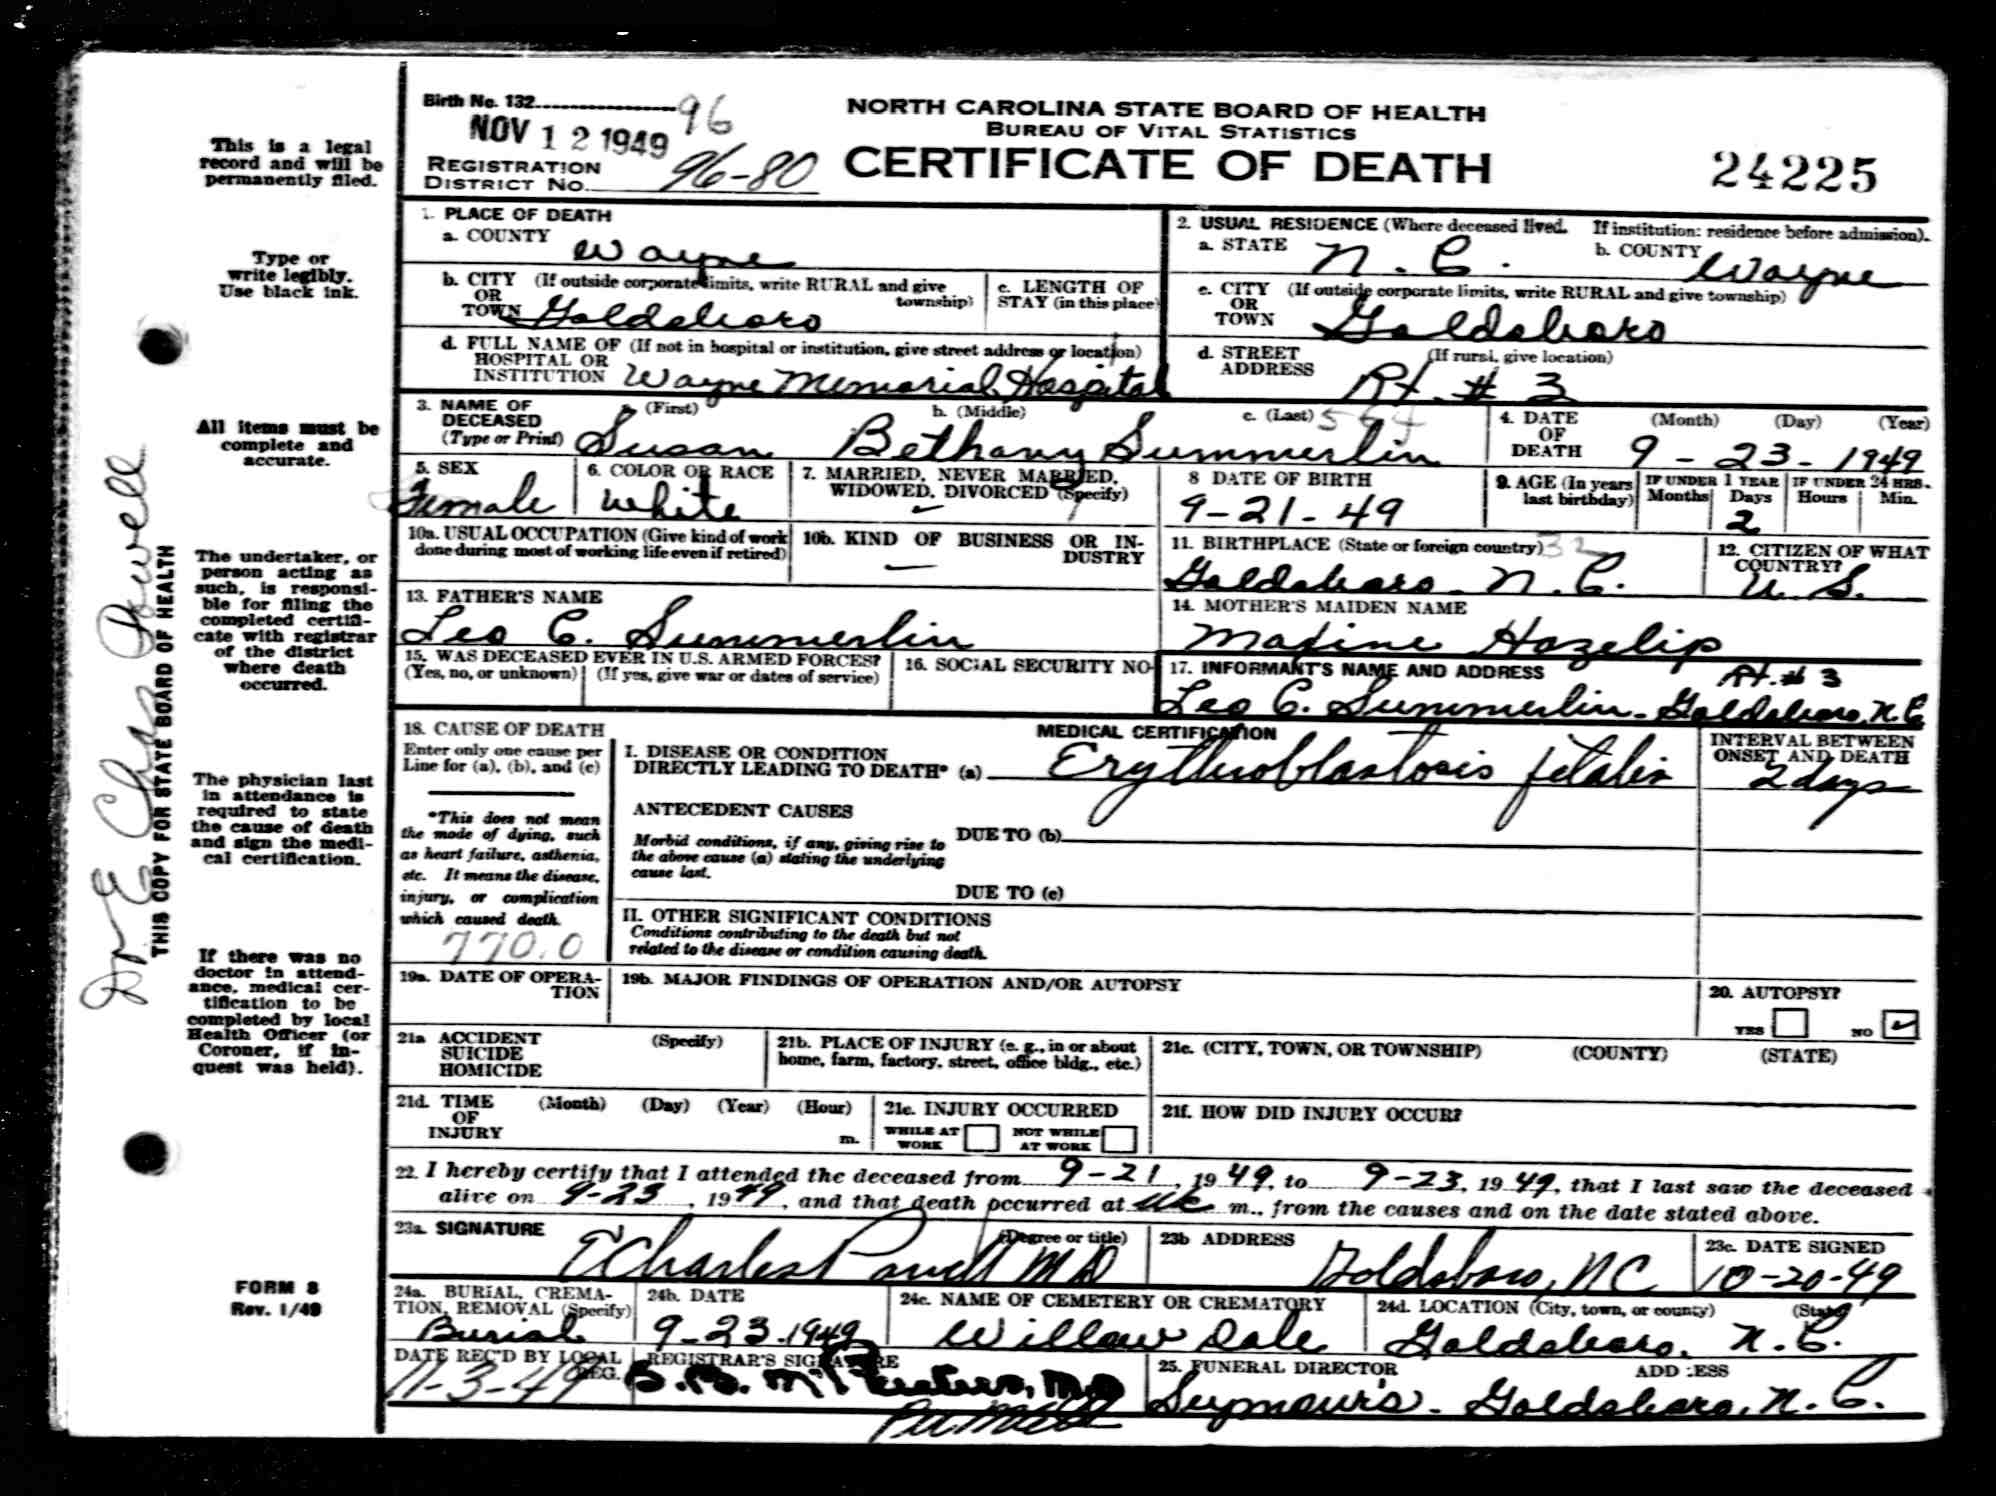 Birth No. 132 96
NOV 12 1949
REGISTRATION
DISTRICT No. 96-80
NORTH CAROLINA STATE BOARD OF HEALTH
BUREAU OF VITAL STATISTICS
CERTIFICATE OF DEATH
24225
This is a legal
record and will be
permanently filed.
Type or
write legibly.
Use black ink.
All items must be
complete and
accurate.
The undertaker, or
person acting as
such, is responsi-
ble for filing the
completed certifi-
cate with registrar
of the district
where death
occurred.
The physician last
in attendance is
required to state
the cause of death
and sign the medi-
cal certification.
If there was no
doctor in attend-
ance, medical cer-
tification to be
completed by local
Health Officer (or
Coroner, if in-
quest was held).
FORM 8
Rev. 1/49
Dr E Chas Powell
THIS COPY FOR STATE BOARD OF HEALTH
1. PLACE OF DEATH
a. COUNTY Wayne
b. CITY (If outside corporate limits, write RURAL and give
OR township)
TOWN Goldsboro
c. LENGTH OF
STAY (in this place)
d. FULL NAME OF (If not in hospital or institution, give street address or location)
HOSPITAL OR
INSTITUTION Wayne Memorial Hospital
2. USUAL RESIDENCE (Where deceased lived. If institution: residence before admission).
a. STATE N. C. b. COUNTY Wayne
c. CITY (If outside corporate limits, write RURAL and give township)
OR
TOWN Goldsboro
d. STREET (If rural, give location)
ADDRESS Rt. # 3
3. NAME OF a. (First) b. (Middle) c. (Last)
DECEASED
(Type or Print) Susan Bethany Summerlin
4. DATE (Month) (Day) (Year)
OF
DEATH 9 - 23 - 1949
5. SEX
Female
6. COLOR OR RACE
White
7. MARRIED, NEVER MARRIED,
WIDOWED, DIVORCED (Specify)
8 DATE OF BIRTH
9-21-49
9. AGE (In years last birthday) IF UNDER 1 YEAR IF UNDER 24 HRS.
Months Days Hours Min.
2
10a. USUAL OCCUPATION (Give kind of work
done during most of working life even if retired)
10b. KIND OF BUSINESS OR IN-
DUSTRY
—
11. BIRTHPLACE (State or foreign country) 32
Goldsboro N. C.
12. CITIZEN OF WHAT
COUNTRY?
U. S.
13. FATHER'S NAME
Leo C. Summerlin
14. MOTHER'S MAIDEN NAME
Maxine Hazelip
15. WAS DECEASED EVER IN U.S. ARMED FORCES?
(Yes, no, or unknown) (If yes, give war or dates of service)
16. SOCIAL SECURITY NO.
17. INFORMANT'S NAME AND ADDRESS Rt. # 3
Leo C. Summerlin - Goldsboro, N. C.
18. CAUSE OF DEATH
Enter only one cause per
Line for (a), (b), and (c)
*This does not mean
the mode of dying, such
as heart failure, asthenia,
etc. It means the disease,
injury, or complication
which caused death.
770.0
MEDICAL CERTIFICATION
I. DISEASE OR CONDITION
DIRECTLY LEADING TO DEATH* (a) Erythroblastosis fetalis
INTERVAL BETWEEN
ONSET AND DEATH
2 days
ANTECEDENT CAUSES
Morbid conditions, if any, giving rise to
the above cause (a) stating the underlying
cause last.
DUE TO (b)
DUE TO (c)
II. OTHER SIGNIFICANT CONDITIONS
Conditions contributing to the death but not
related to the disease or condition causing death.
19a. DATE OF OPERA-
TION
19b. MAJOR FINDINGS OF OPERATION AND/OR AUTOPSY
20. AUTOPSY?
YES NO ✓
21a ACCIDENT (Specify)
SUICIDE
HOMICIDE
21b. PLACE OF INJURY (e. g., in or about
home, farm, factory, street, office bldg., etc.)
21c. (CITY, TOWN, OR TOWNSHIP) (COUNTY) (STATE)
21d. TIME (Month) (Day) (Year) (Hour)
OF
INJURY m.
21e. INJURY OCCURRED
WHILE AT WORK NOT WHILE AT WORK
21f. HOW DID INJURY OCCUR?
22. I hereby certify that I attended the deceased from 9-21, 1949, to 9-23, 1949, that I last saw the deceased
alive on 9-23, 1949, and that death occurred at m., from the causes and on the date stated above.
23a. SIGNATURE (Degree or title)
E Charles Powell MD
23b ADDRESS
Goldsboro, NC
23c. DATE SIGNED
10-20-49
24a. BURIAL, CREMA-
TION, REMOVAL (Specify)
Burial
24b. DATE
9-23-1949
24c. NAME OF CEMETERY OR CREMATORY
Willow Dale
24d. LOCATION (City, town, or county) (State)
Goldsboro, N. C.
DATE REC'D BY LOCAL
REG.
11-3-49
REGISTRAR'S SIGNATURE
25. FUNERAL DIRECTOR ADDRESS
Seymour's - Goldsboro, N. C.